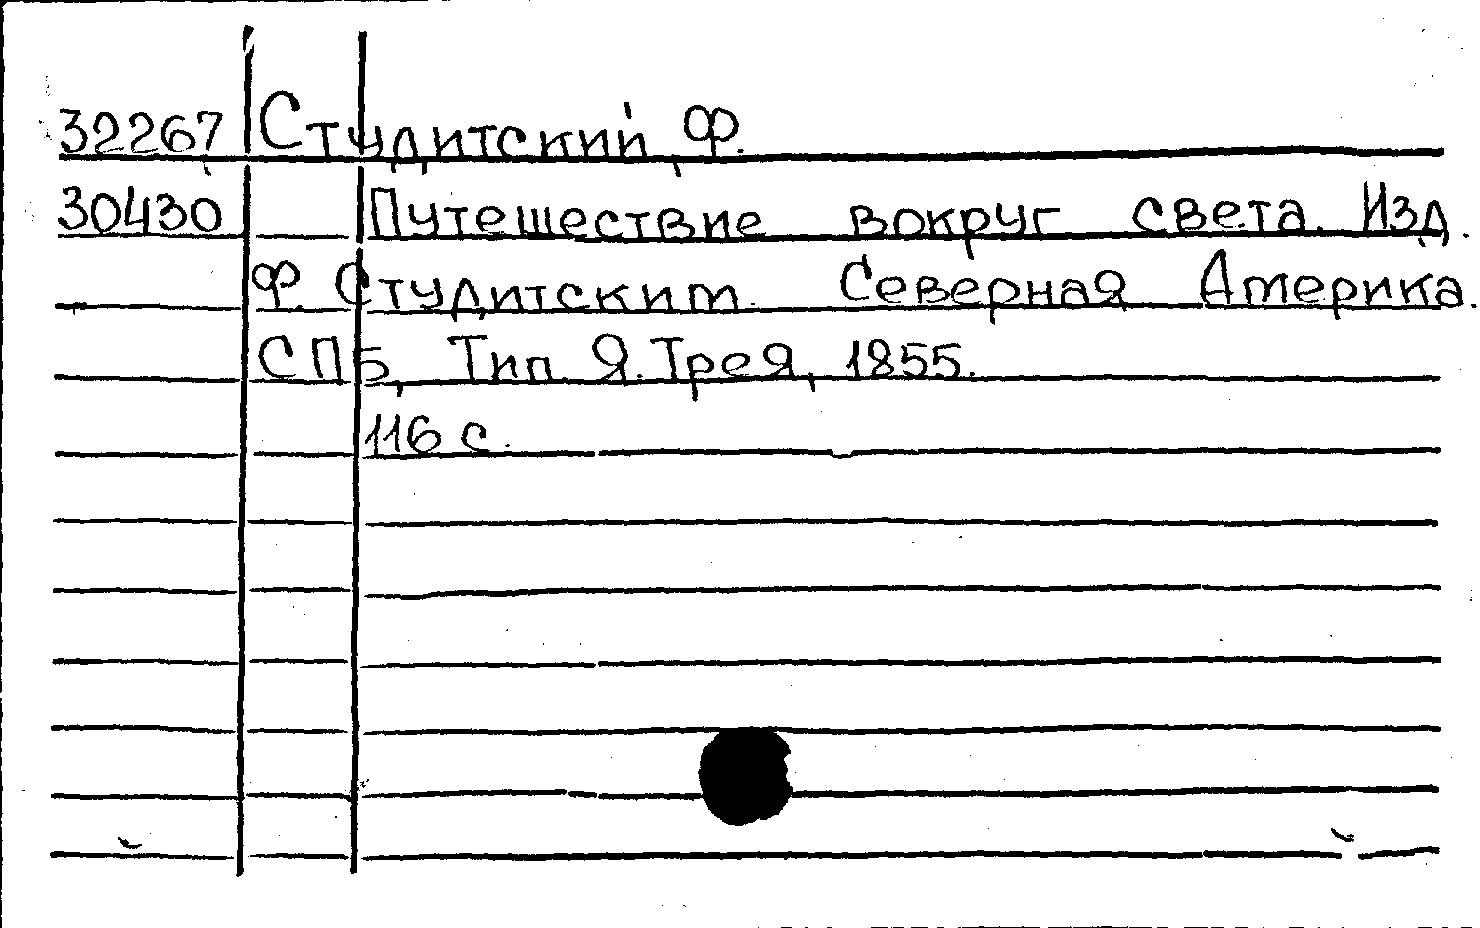 32267 Студитский, Ф.
30430 Путешествие вокруг света. Изд.
Ф. Студитским. Северная Америка.
СПБ, Тип. Я. Трея, 1855.
116 с.